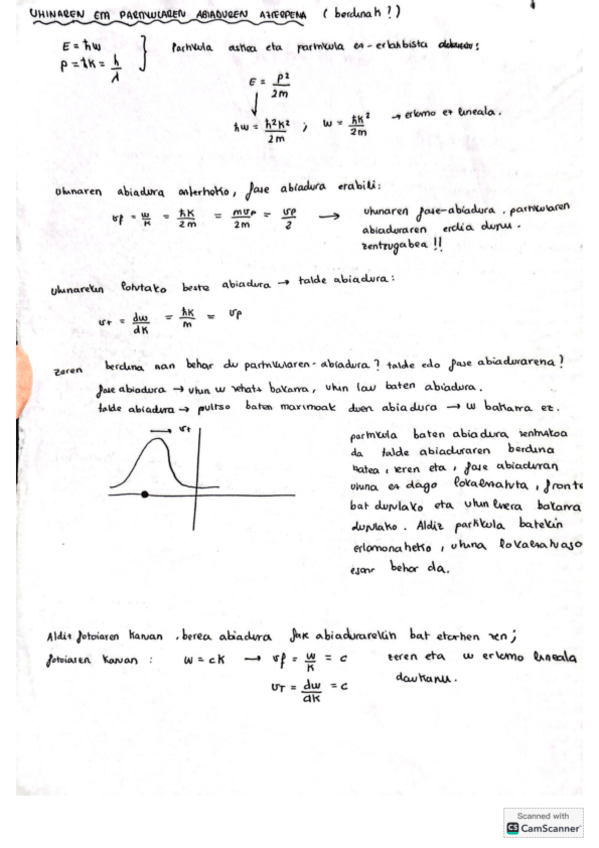 UHINAREN ETA PARTIKULAREN ABIADUREN AZTERPENA (berdinak!)
E = ħw
p = ħK = h/λ
Partikula askea eta partikula ez-erlatibista
E = p²/2m
ħw = ħ²K²/2m ; w = ħK²/2m → erlazio ez lineala.
Uhinaren abiadura aztertzeko, fase abiadura erabili:
vf = w/K = ħK/2m = mvp/2m = vp/2 →
uhinaren fase-abiadura, partikularen
abiaduraren erdia dugu.
zentzugabea!!
Uhinarekin lotutako beste abiadura → talde abiadura:
vT = dw/dK = ħK/m = vp
zeren berdina izan behar du partikularen-abiadura? talde edo fase abiadurarena?
fase abiadura → uhin w zehatz bakarra, uhin lau baten abiadura.
talde abiadura → pultso baten maximoak duen abiadura → w bakarra ez.
vT
partikula baten abiadura
da talde abiaduraren berdina
izatea, zeren eta, fase abiaduran
uhina ez dago lokalizatuta, fronte
bat dugulako eta uhin luzera bakarra
dugulako. Aldiz partikula batekin
erlazionatzeko, uhina
behar da.
Aldiz fotoiaren kasuan, berea abiadura fase abiadurarekin bat etortzen zen;
fotoiaren kasuan: w = cK → vf = w/K = c
zeren eta w erlazio lineala
vT = dw/dK = c
daukagu.
Scanned with
CS CamScanner